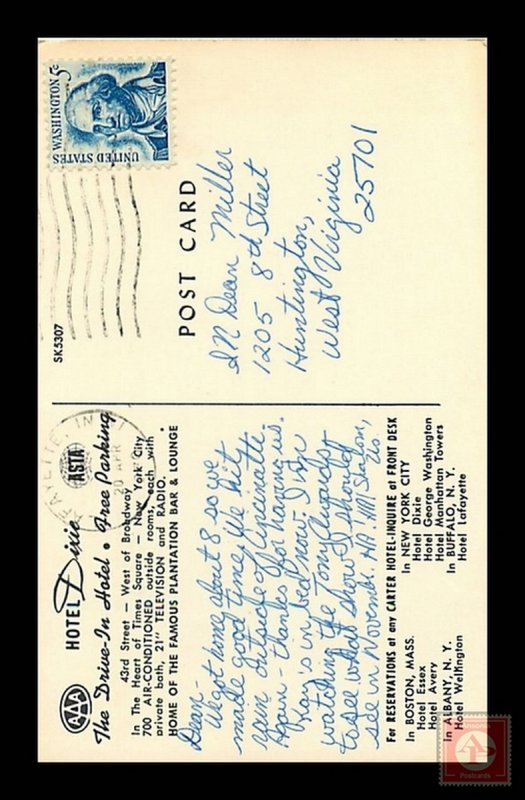 AAA
HOTEL Dixie
ASTA
The Drive-In Hotel • Free Parking
43rd Street — West of Broadway
In The Heart of Times Square — New York City
700 AIR-CONDITIONED outside rooms, each with
private bath, 21" TELEVISION and RADIO.
HOME OF THE FAMOUS PLANTATION BAR & LOUNGE
Dean -
We got home about 8 so we
made good time. We hit
rain outside of Cincinnati.
Again - thanks for having us.
Kay is in bed now. I'm
watching the Tony Awards
to see what show I should
see in November.
For RESERVATIONS at any CARTER HOTEL-INQUIRE at FRONT DESK
In BOSTON, MASS.
Hotel Essex
Hotel Avery
In ALBANY, N. Y.
Hotel Wellington
In NEW YORK CITY
Hotel Dixie
Hotel George Washington
Hotel Manhattan Towers
In BUFFALO, N. Y.
Hotel Lafayette
SK5307
POST CARD
UNITED STATES
WASHINGTON 5c
20 APR
Dean Miller
1205 8th Street
Huntington,
West Virginia
25701
Postcards